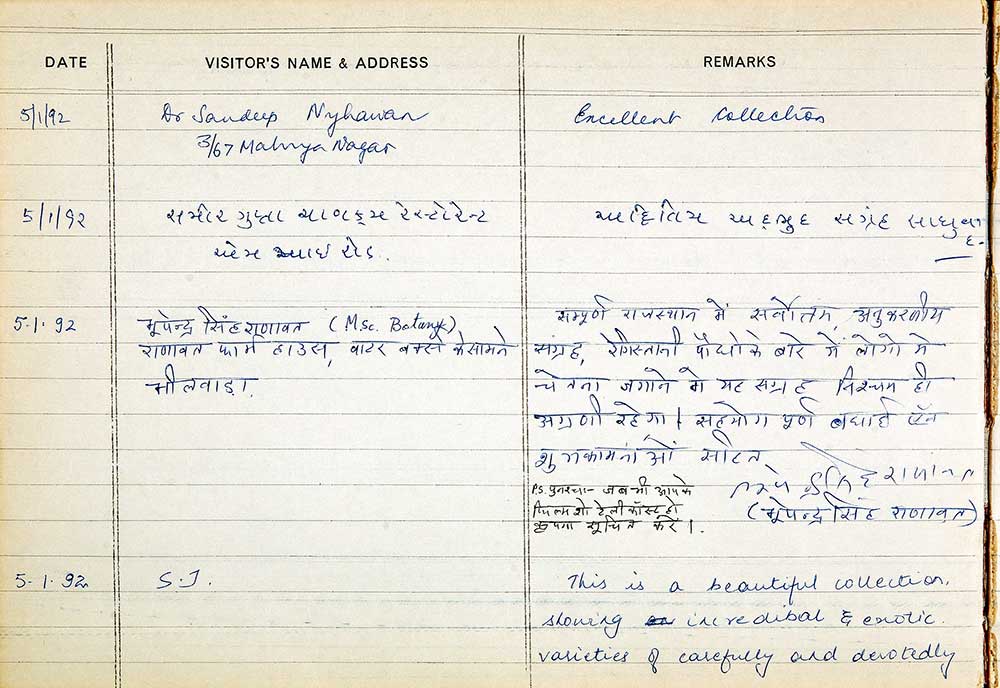 DATE VISITOR'S NAME & ADDRESS REMARKS
5/1/92 Dr Sandeep Nyhawan Excellent Collection
3/67 Malviya Nagar
5/1/92 સમીર ગુપ્તા ચાણક્ય રેસ્ટોરેન્ટ અદ્ભુદ સંગ્રહ
એમ આઇ રોડ.
5.1.92 भूपेन्द्र सिंह राणावत (Msc. Botany) सम्पूर्ण राजस्थान में सर्वोतम, अनुकरणीय
राणावत फार्म हाउस, वाटर वर्क्स के सामने संग्रह, रेगिस्तानी पौधो के बारे में लोगो मे
भीलवाड़ा चेतना जगाने मे यह संग्रह निश्चय ही
अग्रणी रहेगा। सहयोग पूर्ण बधाई
शुभकामनाओं सहित
P.S. पुनश्च:- जब भी आपके
फिल्म शो टेलीकॉस्ट हो (भूपेन्द्र सिंह राणावत)
कृपया सूचित करें।
5.1.92 S.J. This is a beautiful collection,
showing incredibal & exotic
varieties of carefully and devotedly